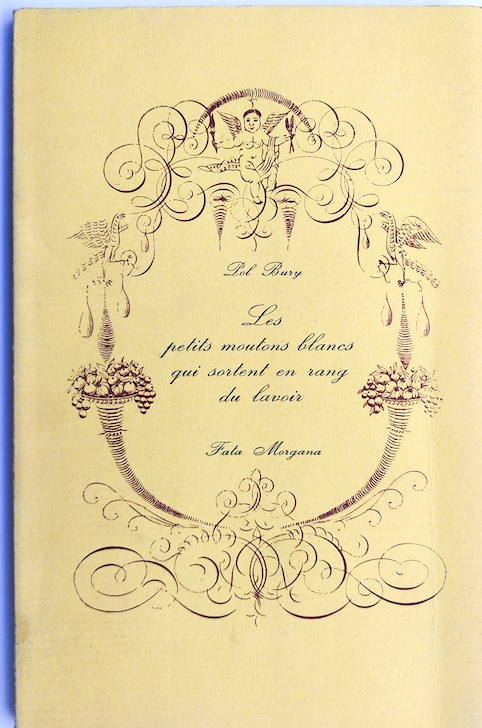 Pol Bury
Les
petits moutons blancs
qui sortent en rang
du lavoir
Fata Morgana